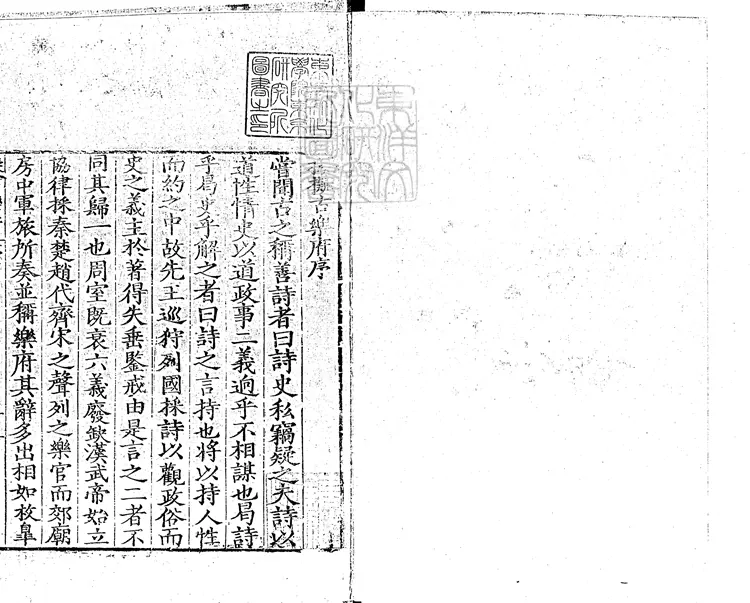 擬古樂府序
嘗聞古之稱善詩者曰詩史私竊疑之夫詩以
道性情史以道政事二義逈乎不相謀也曷詩
乎曷史乎解之者曰詩之言持也將以持人性
而約之中故先王巡狩列國採詩以觀政俗而
史之義主於著得失垂鑒戒由是言之二者不
同其歸一也周室既衰六義廢缺漢武帝始立
協律採秦楚趙代齊宋之聲列之樂官而郊廟
房中軍旅所奏並稱樂府其辭多出相如枚皐
研究所
圖書之印